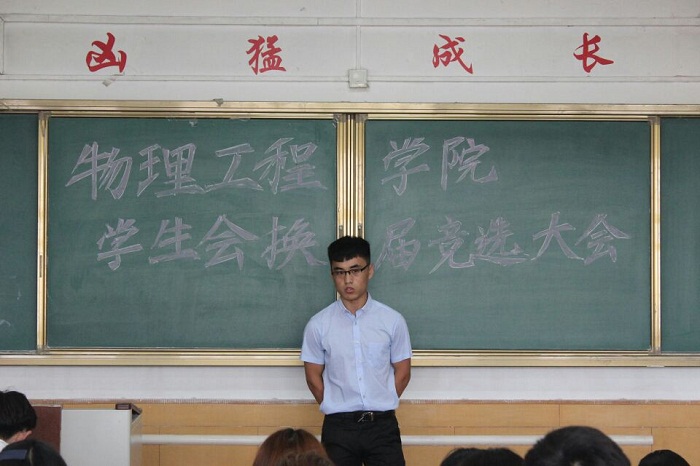 凶 猛 成 长
物理工程学院
学生会换届竞选大会